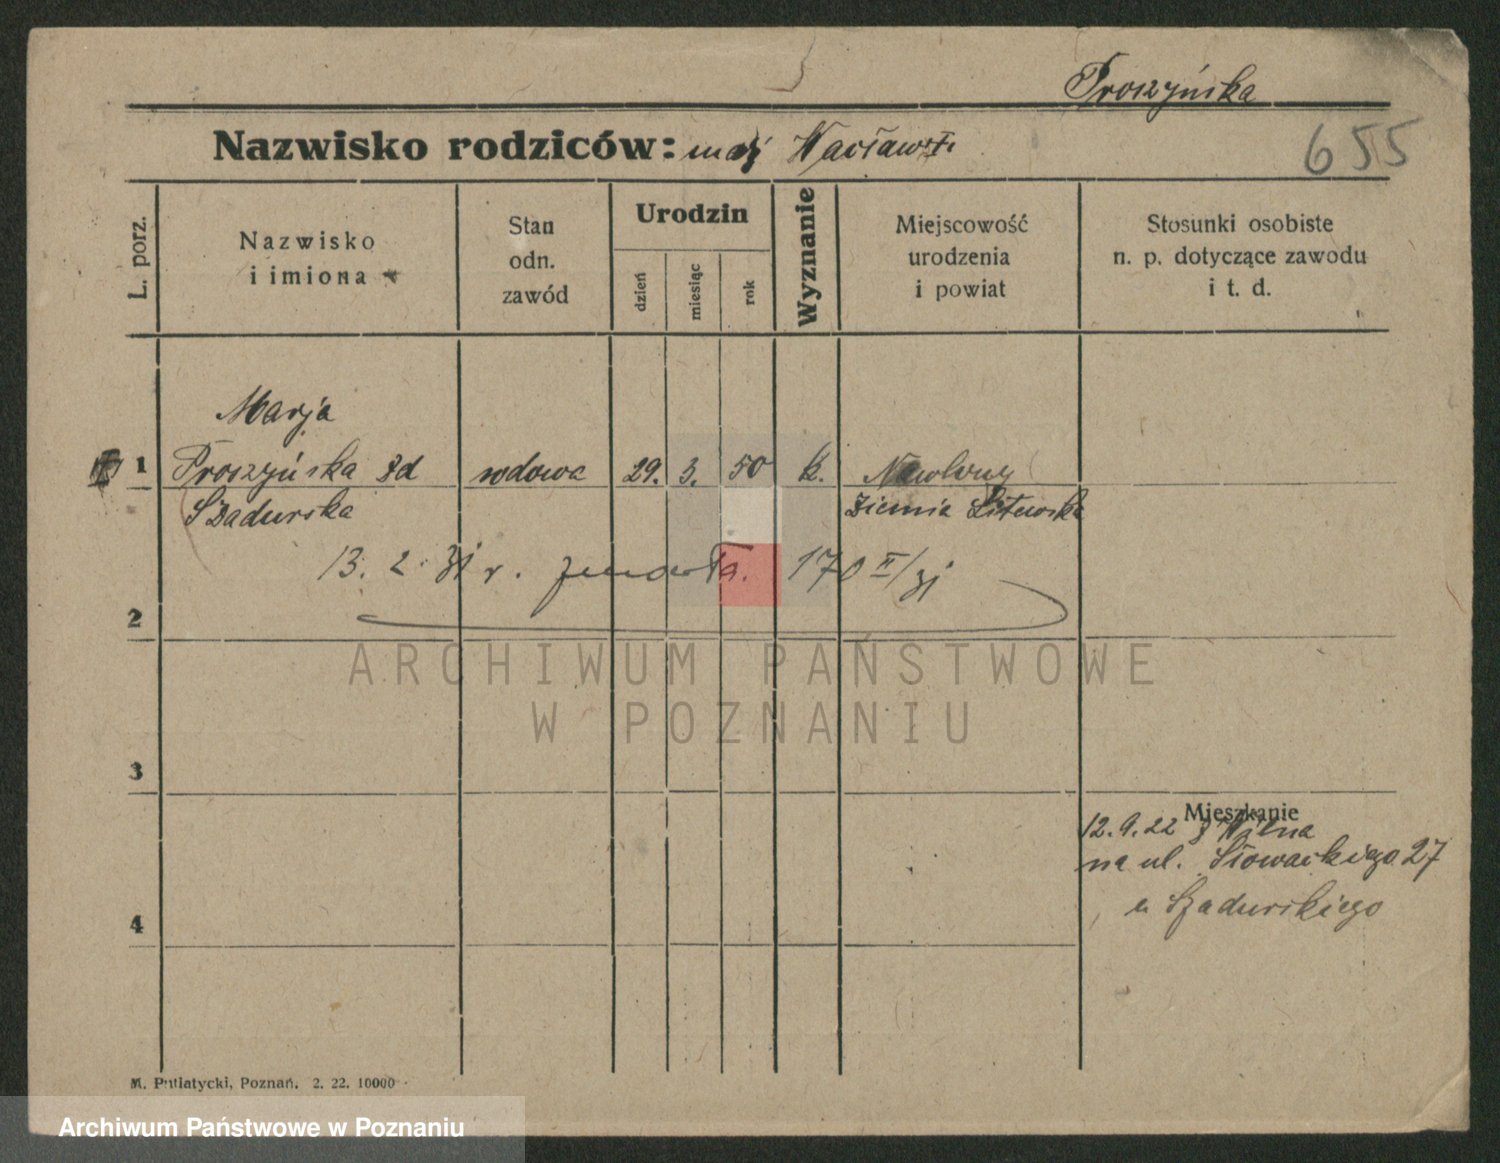 Proszyńska
Nazwisko rodziców: mąż Wacław
655
L. porz.
Nazwisko
i imiona
Stan
odn.
zawód
Urodzin
dzień
miesiąc
rok
Wyznanie
Miejscowość
urodzenia
i powiat
Stosunki osobiste
n. p. dotyczące zawodu
i t. d.
Marja
1 Proszyńska zd wdowa 29. 3. 50 k.
Szadurska Ziemia Litewska
13. 2. 31 r. zmarła. 170 II/31
2
3
Mieszkanie
12.9.22 z Wilna
na ul. Słowackiego 27
u Szadurskiego
4
M. Putiatycki, Poznań. 2. 22. 10000
ARCHIWUM PAŃSTWOWE
W POZNANIU
Archiwum Państwowe w Poznaniu